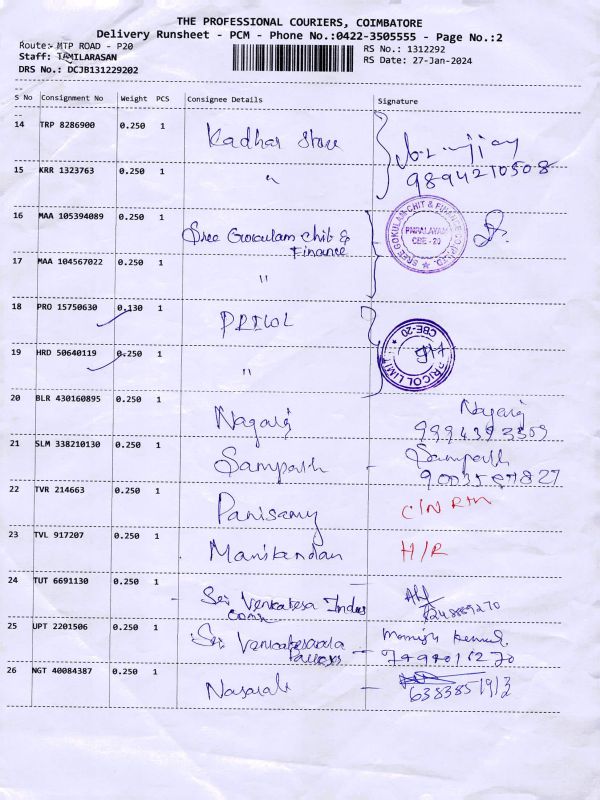 THE PROFESSIONAL COURIERS, COIMBATORE
Delivery Runsheet - PCM - Phone No.:0422-3505555 - Page No.:2
Route:- MTP ROAD - P20
RS No.: 1312292
Staff: TAMILARASAN
RS Date: 27-Jan-2024
DRS No.: DCJB131229202
S No Consignment No Weight PCS Consignee Details Signature
14 TRP 8286900 0.250 1 Kadhar Store
15 KRR 1323763 0.250 1 "
9894210508
16 MAA 105394089 0.250 1 Sree Gokulam Chit &
Finance
SREE GOKULAM CHIT & FINANCE CO (P) LTD.
CBE - 20
17 MAA 104567022 0.250 1 "
18 PRO 15750630 0.130 1 PRICOL
PRICOL LIMITED
CBE-20
19 HRD 50640119 0.250 1 "
20 BLR 430160895 0.250 1 Nagaraj Nagaraj
21 SLM 338210130 0.250 1 Sampath - Sampath
22 TVR 214663 0.250 1 Panisamy C/N RTN
23 TVL 917207 0.250 1 Manikandan H/R
24 TUT 6691130 0.250 1 - Sri Venkatesa Indus
25 UPT 2201506 0.250 1 Sri
26 NGT 40084387 0.250 1 -
6383851913